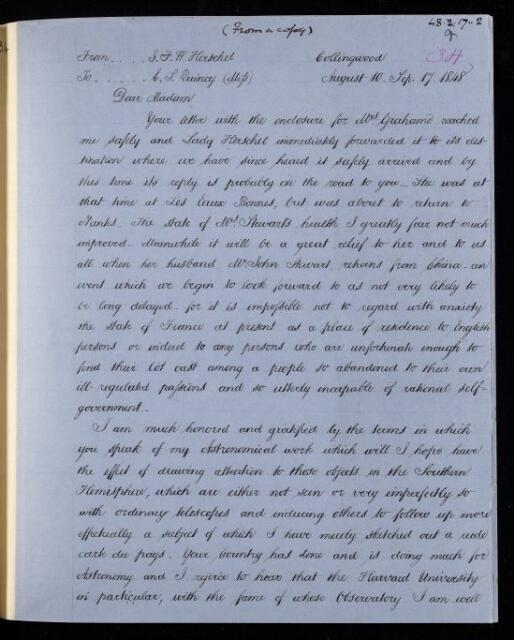 (From a copy)
48.3.17..2
9
34
From.... J. F. W. Herschel
Collingwood
To..... E. S. Quincy (Miss)
August 10. Sep. 17. 1848
Dear Madam
Your letter with the enclosure for Mrs Grahame reached
me safely and Lady Herschel immediately forwarded it to its des-
tination where we have since heard it safely arrived and by
this time its reply is probably on the road to you – She was at
that time at Les Eaux Bonnes, but was about to return to
– The state of Mrs Stewart's health I greatly fear not much
improved – Meanwhile it will be a great relief to her and to us
all when her husband Mr John Stewart, returns from China – an
event which we begin to look forward to as not very likely to
be long delayed – for it is impossible not to regard with anxiety
the state of France at present as a place of residence to English
persons or indeed to any persons who are unfortunate enough to
find their lot cast among a people so abandoned to their own
ill-regulated passions and so utterly incapable of rational self-
government –
I am much honored and gratified by the terms in which
you speak of my Astronomical work which will I hope have
the effect of drawing attention to those objects in the Southern
Hemisphere, which are either not seen or very imperfectly so
with ordinary telescopes and inducing others to follow up more
effectually a subject of which I have merely sketched out a rude
carte du pays. Your Country has done and is doing much for
Astronomy and I rejoice to hear that the Harvard University
in particular, with the fame of whose Observatory I am well